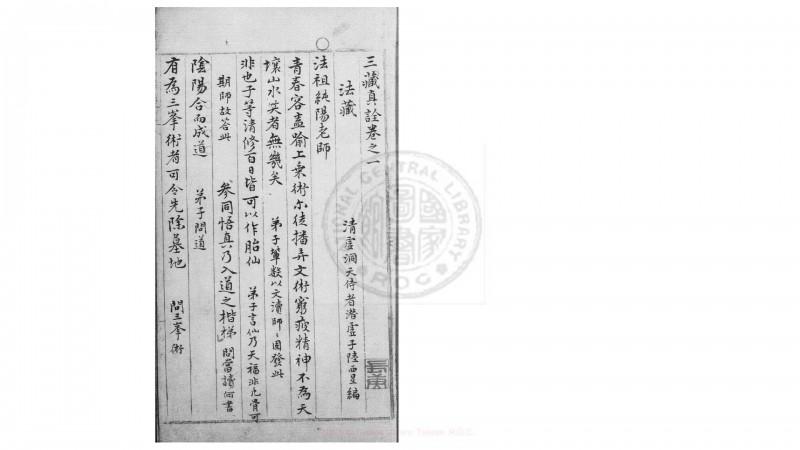 三藏真詮卷之一
法藏
清虛洞天侍者潛虛子陸西星編
法祖純陽老師
青春容盍踰上乘術尓徒播弄文術窮疲精神不為天
壤山水笑者無幾矣 弟子輩數以文瀆師〻因發此
非也子等清修百日皆可以作胎仙 弟子言仙乃天福非凡骨可
期師故答此 參同悟真乃入道之楷梯 問當讀何書
陰陽合而成道 弟子問道
有為三峯術者可令先除墓地 問三峯術
NATIONAL CENTRAL LIBRARY
R.O.C.
國家圖書館